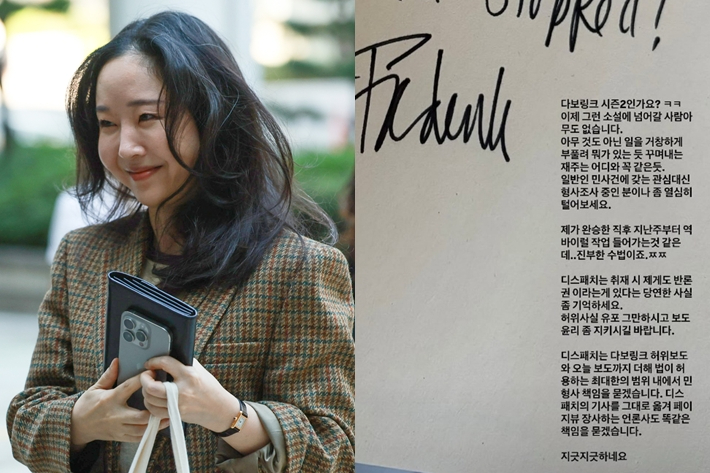 stopped!
다보링크 시즌2인가요? ㅋㅋ
이제 그런 소설에 넘어갈 사람아
무도 없습니다.
아무 것도 아닌 일을 거창하게
부풀려 뭐가 있는 듯 꾸며내는
재주는 어디와 꼭 같은듯.
일반인 민사건에 갖는 관심대신
형사조사 중인 분이나 좀 열심히
털어보세요.
제가 완승한 직후 지난주부터 역
바이럴 작업 들어가는것 같은
데..진부한 수법이죠.ㅉㅉ
디스패치는 취재 시 제게도 반론
권 이라는게 있다는 당연한 사실
좀 기억하세요.
허위사실 유포 그만하시고 보도
윤리 좀 지키시길 바랍니다.
디스패치는 다보링크 허위보도
와 오늘 보도까지 더해 법이 허
용하는 최대한의 범위 내에서 민
형사 책임을 묻겠습니다. 디스
패치의 기사를 그대로 옮겨 페이
지뷰 장사하는 언론사도 똑같은
책임을 묻겠습니다.
지긋지긋하네요